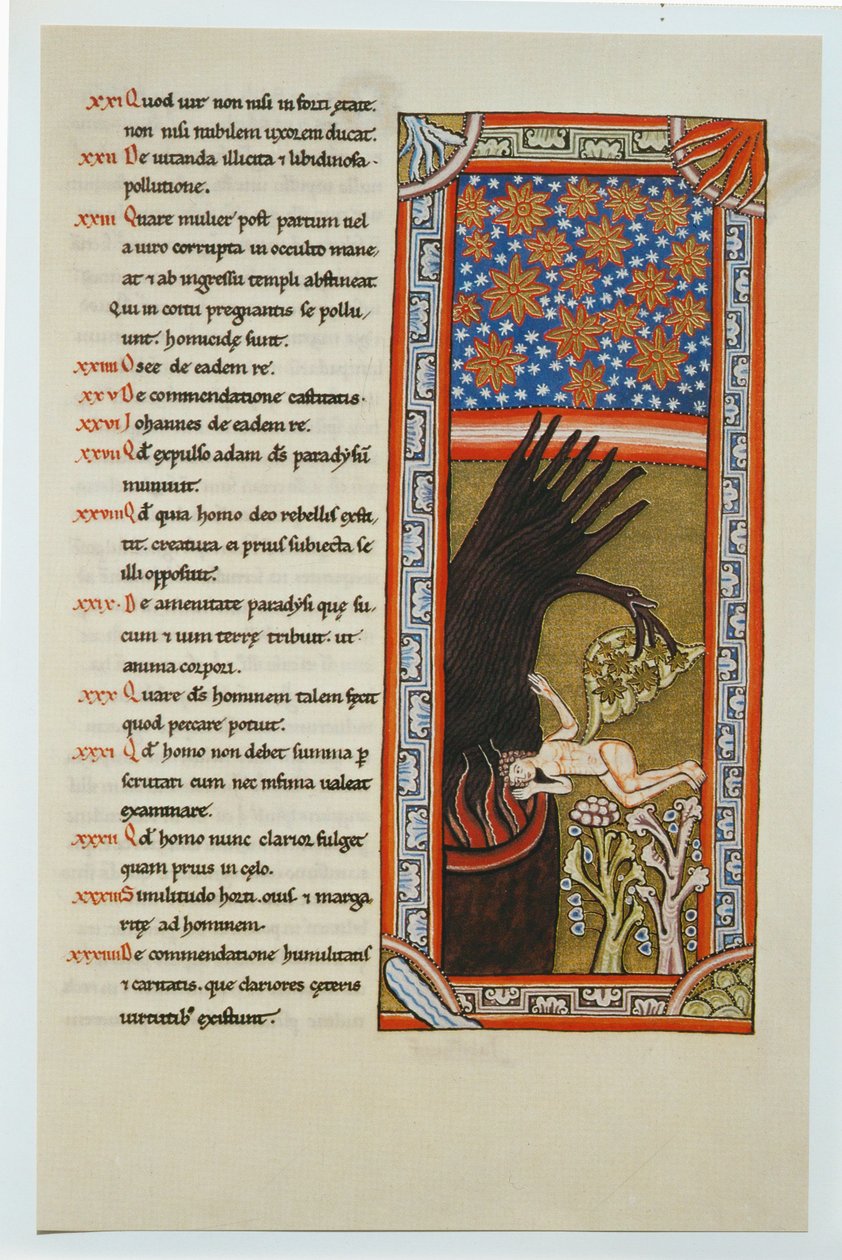 xxi Quod uir non nisi in forti ętate.
non nisi nubilem uxorem ducat.
xxii De uitanda illicita ⁊ libidinosa
pollutione.
xxiii Quare mulier post partum uel
a uiro corrupta in occulto mane,
at ⁊ ab ingressu templi abstineat.
Qui in coitu pregnantis se pollu,
unt. homicidę sunt.
xxiiii Osee de eadem re.
xxv De commendatione castitatis.
xxvi Iohannes de eadem re.
xxvii Qd̄ expulso adam ds̄ paradysū
muniuit.
xxviii Qd̄ quia homo deo rebellis exsti,
tit. creatura ei prius subiecta se
illi opposuit.
xxix. De amenitate paradysi quę su,
cum ⁊ uim terrę tribuit. ut
anima corpori.
xxx Quare ds̄ hominem talem fecit
quod peccare potuit.
xxxi Qd̄ homo non debet summa ꝑ
scrutari cum nec infima ualeat
examinare.
xxxii Qd̄ homo nunc clarior fulget
quam prius in cęlo.
xxxiii Similitudo horti. ouis. ⁊ marga,
ritę ad hominem.
xxxiiii De commendatione humilitatis
⁊ caritatis. que clariores cęteris
uirtutibꝰ existunt.